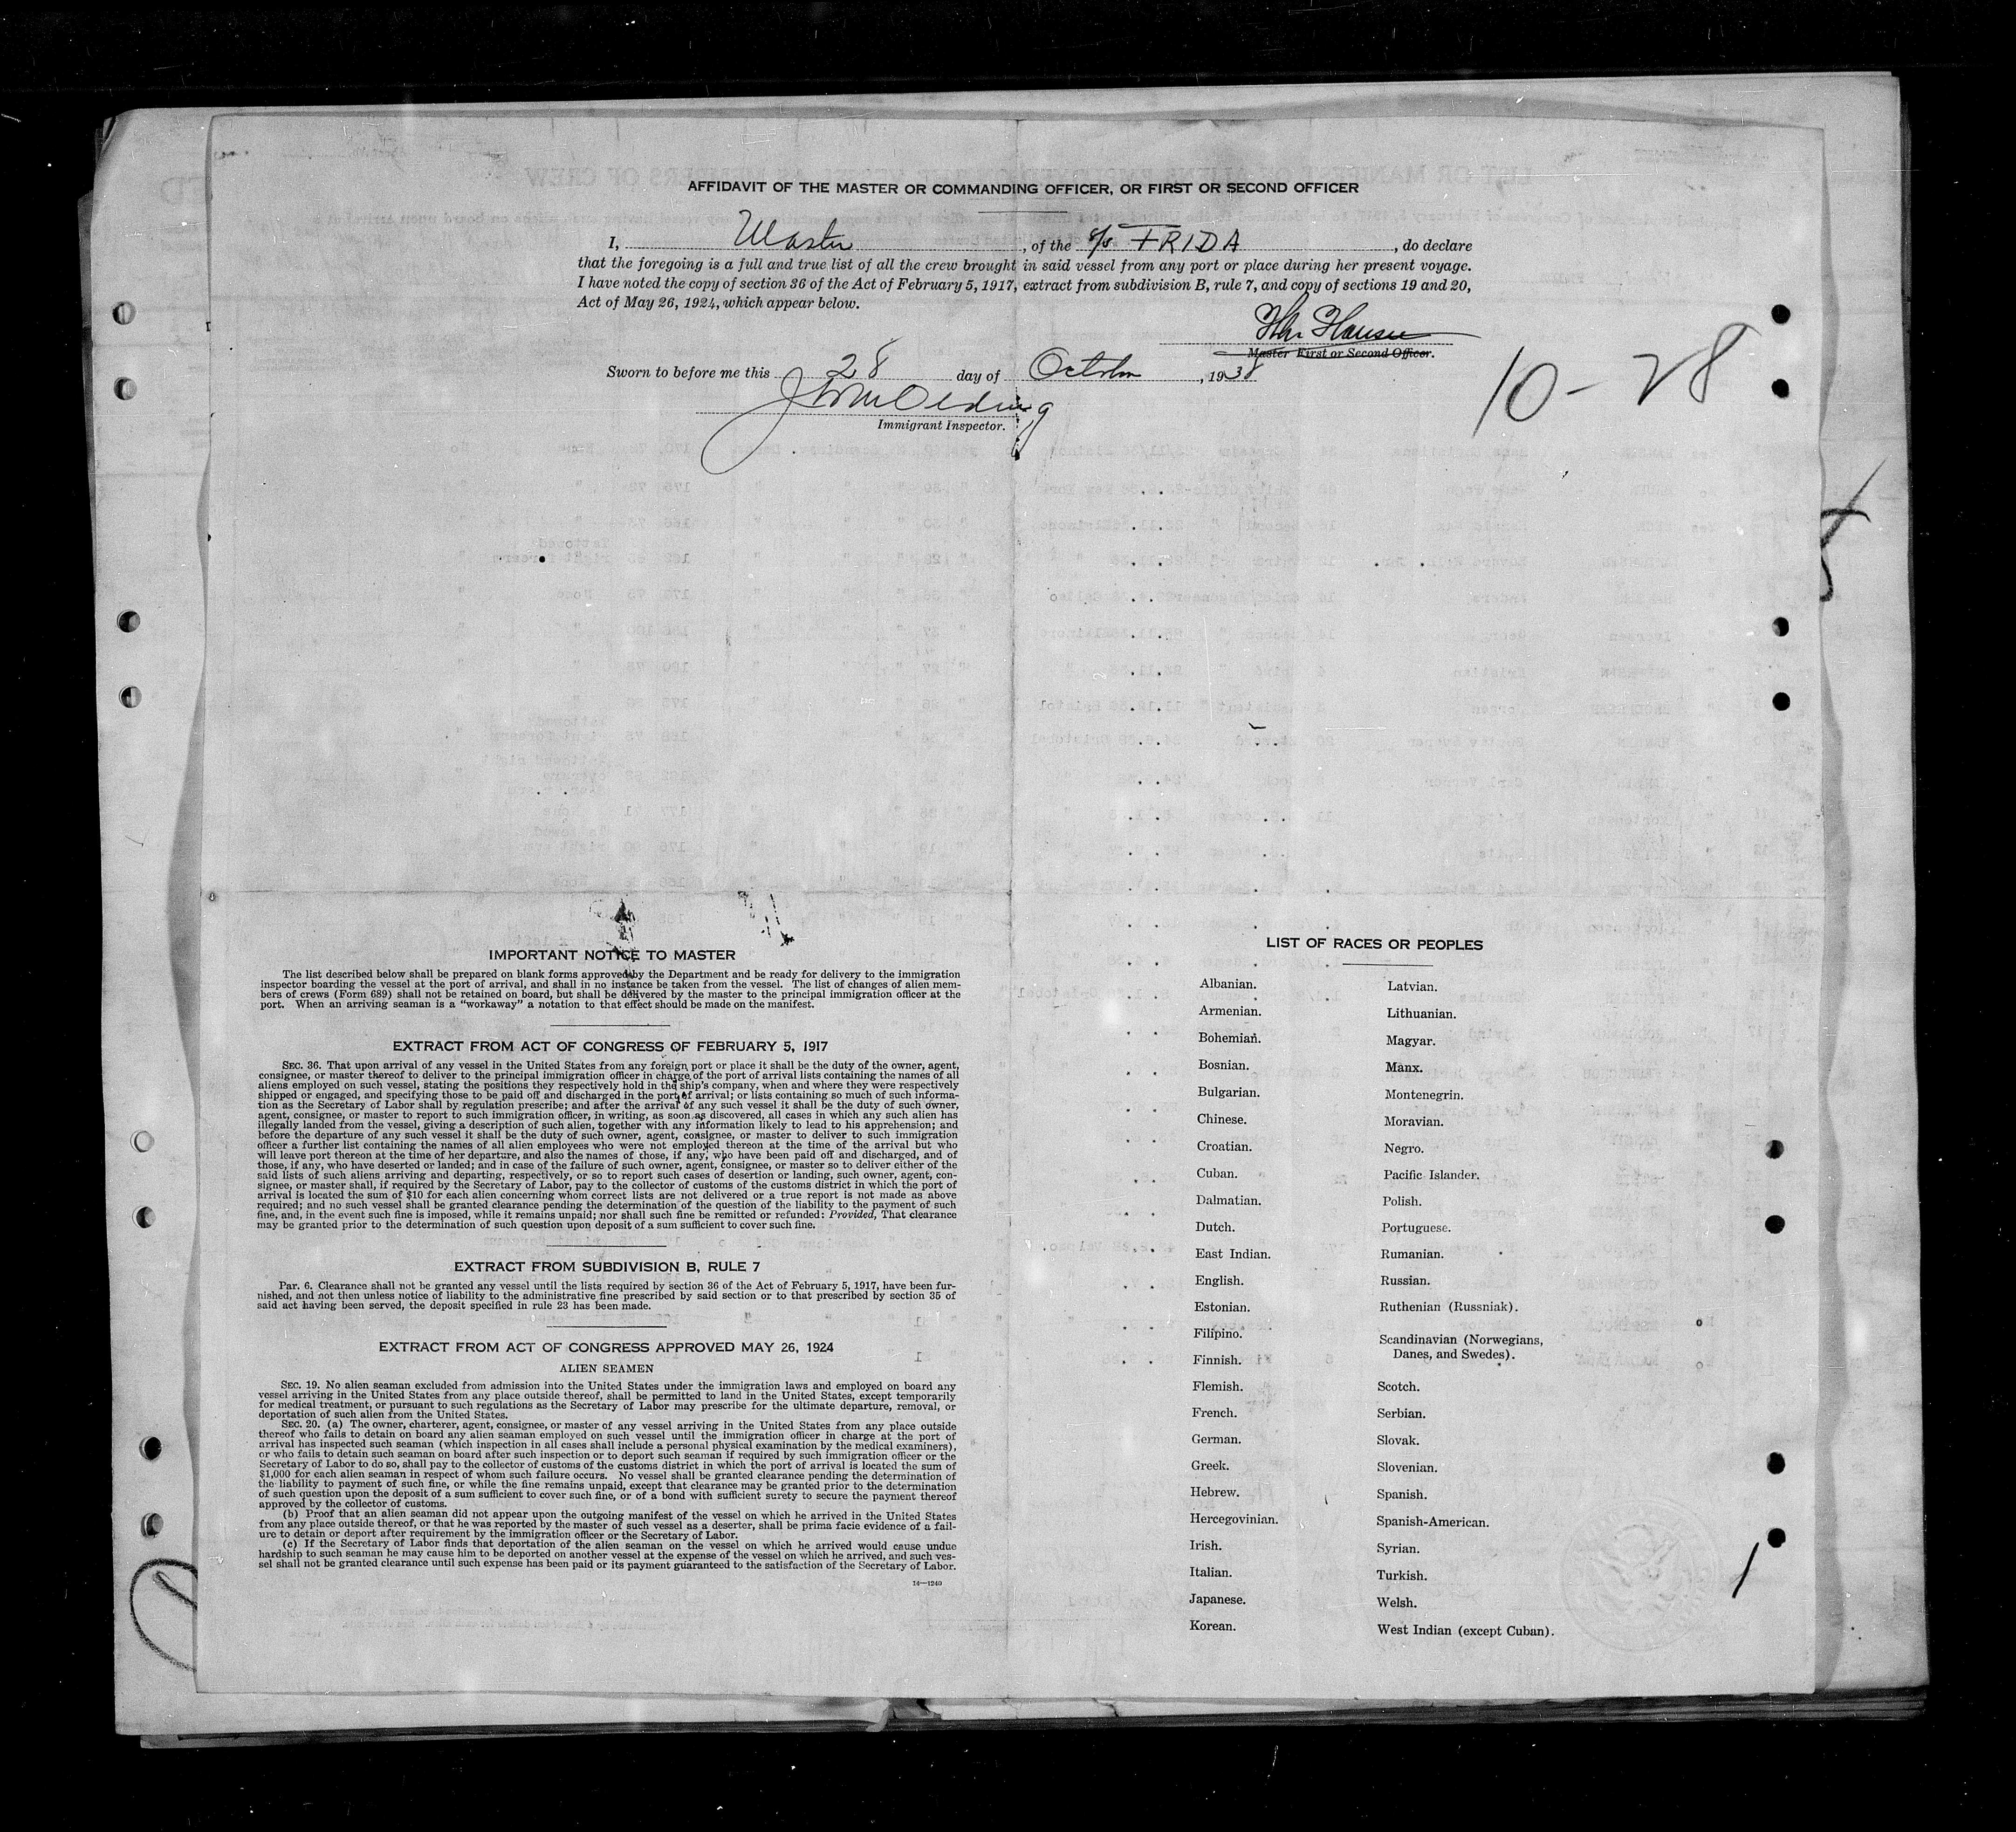 AFFIDAVIT OF THE MASTER OR COMMANDING OFFICER, OR FIRST OR SECOND OFFICER
I, Master, of the S/S FRIDA, do declare
that the foregoing is a full and true list of all the crew brought in said vessel from any port or place during her present voyage.
I have noted the copy of section 36 of the Act of February 5, 1917, extract from subdivision B, rule 7, and copy of sections 19 and 20,
Act of May 26, 1924, which appear below.
Hansen
Master First or Second Officer.
Sworn to before me this 28 day of October, 1938
Immigrant Inspector.
10-28
IMPORTANT NOTICE TO MASTER
The list described below shall be prepared on blank forms approved by the Department and be ready for delivery to the immigration
inspector boarding the vessel at the port of arrival, and shall in no instance be taken from the vessel. The list of changes of alien mem-
bers of crews (Form 689) shall not be retained on board, but shall be delivered by the master to the principal immigration officer at the
port. When an arriving seaman is a "workaway" a notation to that effect should be made on the manifest.
EXTRACT FROM ACT OF CONGRESS OF FEBRUARY 5, 1917
SEC. 36. That upon arrival of any vessel in the United States from any foreign port or place it shall be the duty of the owner, agent,
consignee, or master thereof to deliver to the principal immigration officer in charge of the port of arrival lists containing the names of all
aliens employed on such vessel, stating the positions they respectively hold in the ship's company, when and where they were respectively
shipped or engaged, and specifying those to be paid off and discharged in the port of arrival; or lists containing so much of such informa-
tion as the Secretary of Labor shall by regulation prescribe; and after the arrival of any such vessel it shall be the duty of such owner,
agent, consignee, or master to report to such immigration officer, in writing, as soon as discovered, all cases in which any such alien has
illegally landed from the vessel, giving a description of such alien, together with any information likely to lead to his apprehension; and
before the departure of any such vessel it shall be the duty of such owner, agent, consignee, or master to deliver to such immigration
officer a further list containing the names of all alien employees who were not employed thereon at the time of the arrival but who
will leave port thereon at the time of her departure, and also the names of those, if any, who have been paid off and discharged, and of
those, if any, who have deserted or landed; and in case of the failure of such owner, agent, consignee, or master so to deliver either of the
said lists of such aliens arriving and departing, respectively, or so to report such cases of desertion or landing, such owner, agent, con-
signee, or master shall, if required by the Secretary of Labor, pay to the collector of customs of the customs district in which the port of
arrival is located the sum of $10 for each alien concerning whom correct lists are not delivered or a true report is not made as above
required; and no such vessel shall be granted clearance pending the determination of the question of the liability to the payment of such
fine, and, in the event such fine is imposed, while it remains unpaid; nor shall such fine be remitted or refunded: Provided, That clearance
may be granted prior to the determination of such question upon deposit of a sum sufficient to cover such fine.
EXTRACT FROM SUBDIVISION B, RULE 7
Par. 6. Clearance shall not be granted any vessel until the lists required by section 36 of the Act of February 5, 1917, have been fur-
nished, and not then unless notice of liability to the administrative fine prescribed by said section or to that prescribed by section 35 of
said act having been served, the deposit specified in rule 23 has been made.
EXTRACT FROM ACT OF CONGRESS APPROVED MAY 26, 1924
ALIEN SEAMEN
SEC. 19. No alien seaman excluded from admission into the United States under the immigration laws and employed on board any
vessel arriving in the United States from any place outside thereof, shall be permitted to land in the United States, except temporarily
for medical treatment, or pursuant to such regulations as the Secretary of Labor may prescribe for the ultimate departure, removal, or
deportation of such alien from the United States.
SEC. 20. (a) The owner, charterer, agent, consignee, or master of any vessel arriving in the United States from any place outside
thereof who fails to detain on board any alien seaman employed on such vessel until the immigration officer in charge at the port of
arrival has inspected such seaman (which inspection in all cases shall include a personal physical examination by the medical examiners),
or who fails to detain such seaman on board after such inspection or to deport such seaman if required by such immigration officer or the
Secretary of Labor to do so, shall pay to the collector of customs of the customs district in which the port of arrival is located the sum of
$1,000 for each alien seaman in respect of whom such failure occurs. No vessel shall be granted clearance pending the determination of
the liability to payment of such fine, or while the fine remains unpaid, except that clearance may be granted prior to the determination
of such question upon the deposit of a sum sufficient to cover such fine, or of a bond with sufficient surety to secure the payment thereof
approved by the collector of customs.
(b) Proof that an alien seaman did not appear upon the outgoing manifest of the vessel on which he arrived in the United States
from any place outside thereof, or that he was reported by the master of such vessel as a deserter, shall be prima facie evidence of a fail-
ure to detain or deport after requirement by the immigration officer or the Secretary of Labor.
(c) If the Secretary of Labor finds that deportation of the alien seaman on the vessel on which he arrived would cause undue
hardship to such seaman he may cause him to be deported on another vessel at the expense of the vessel on which he arrived, and such ves-
sel shall not be granted clearance until such expense has been paid or its payment guaranteed to the satisfaction of the Secretary of Labor.
14—1240
LIST OF RACES OR PEOPLES
Albanian.
Armenian.
Bohemian.
Bosnian.
Bulgarian.
Chinese.
Croatian.
Cuban.
Dalmatian.
Dutch.
East Indian.
English.
Estonian.
Filipino.
Finnish.
Flemish.
French.
German.
Greek.
Hebrew.
Hercegovinian.
Irish.
Italian.
Japanese.
Korean.
Latvian.
Lithuanian.
Magyar.
Manx.
Montenegrin.
Moravian.
Negro.
Pacific Islander.
Polish.
Portuguese.
Rumanian.
Russian.
Ruthenian (Russniak).
Scandinavian (Norwegians,
Danes, and Swedes).
Scotch.
Serbian.
Slovak.
Slovenian.
Spanish.
Spanish-American.
Syrian.
Turkish.
Welsh.
West Indian (except Cuban).